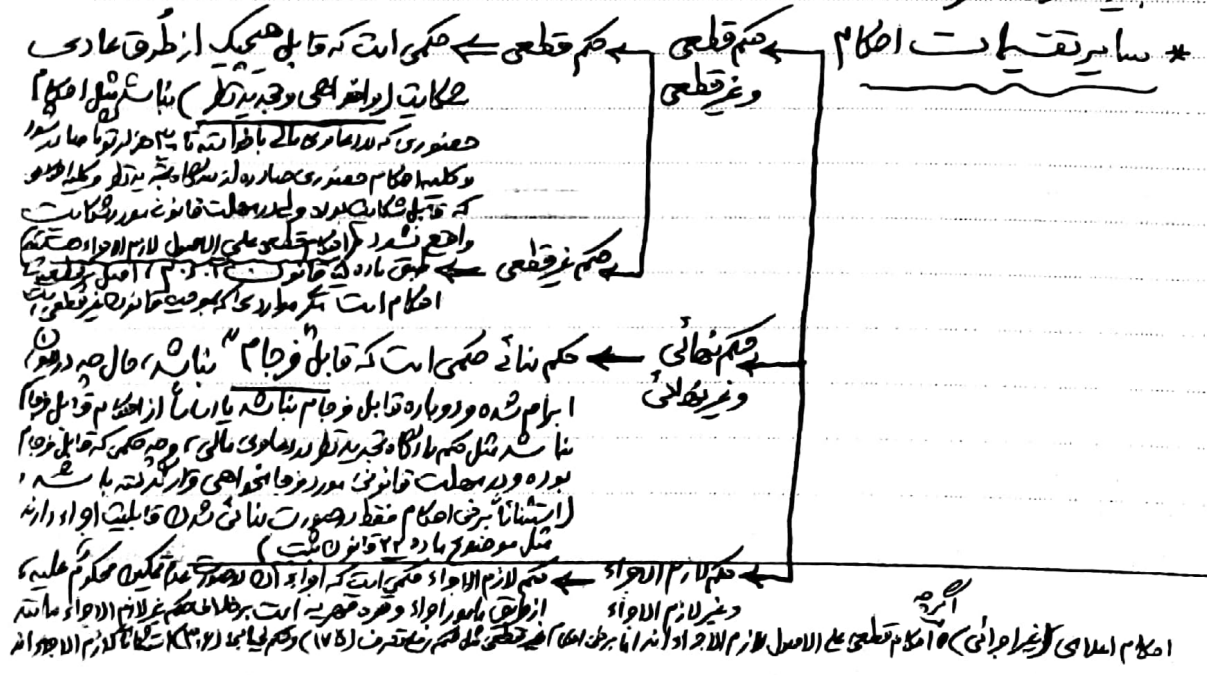 * سایر تقسیمات احکام
حکم قطعی
و غیر قطعی
حکم قطعی ← حکمی است که قابل هیچیک از طُرق عادی
شکایت (واخواهی و تجدیدنظر) نباشد مثل احکام
حضوری که در دعاوی مالی با خواسته تا ۳۰۰ هزار تومان صادر شود
و کلیه احکام حضوری صادره از دادگاه تجدیدنظر و کلیه احکامی
که قابل شکایت بوده ولی در مهلت قانونی مورد شکایت
واقع نشود (احکام قطعی علی الاصول لازم الاجراء هستند)
حکم غیر قطعی ← طبق ماده قانون آ.د.م، اصل بر قطعیت
احکام است مگر مواردی که بموجب قانون غیر قطعی است
حکم نهائی
و غیر نهائی
حکم نهائی حکمی است که قابل "فرجام" نباشد، حال چه در دیوان
ابرام شده و دوباره قابل فرجام نباشد یا اساساً از احکام قابل فرجام
نباشد مثل حکم دادگاه تجدیدنظر در دعاوی مالی، و چه حکمی که قابل فرجام
بوده و در مهلت قانونی مورد فرجامخواهی قرار نگرفته باشد،
(استثنائاً برخی احکام فقط در صورت نهائی شدن قابلیت اجراء دارند
مثل موضوع ماده ۲۲ قانون ثبت)
حکم لازم الاجراء
و غیر لازم الاجراء
حکم لازم الاجراء حکمی است که اجراء آن در صورت عدم تمکین محکوم علیه،
از طریق مامور اجراء و قوه قهریه است برخلاف حکم غیر لازم الاجراء مانند
اگرچه
احکام اعلامی (غیر اجرائی) احکام قطعی علی الاصول لازم الاجراء اند اما برخی احکام غیر قطعی مثل حکم رفع تصرف (۱۷۵) و حکم استثنائاً لازم الاجراء اند